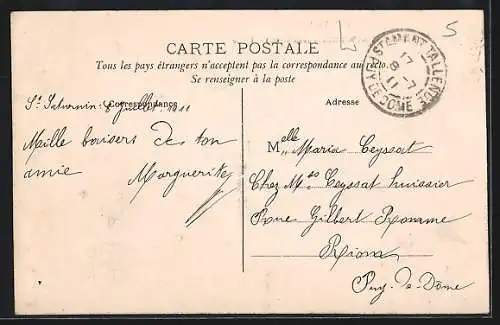 CARTE POSTALE
Tous les pays étrangers n'acceptent pas la correspondance au recto.
Se renseigner à la poste
Correspondance
Adresse
St Saturnin 8 Juillet 1911
Mille baisers de ton
amie Marguerite
Melle Maria Ceyssat
Chez Mr Ceyssat huissier
Rue Gilbert Romme
Riom
Puy-de-Dôme
ST AMANT TALLENDE
PUY DE DOME
5